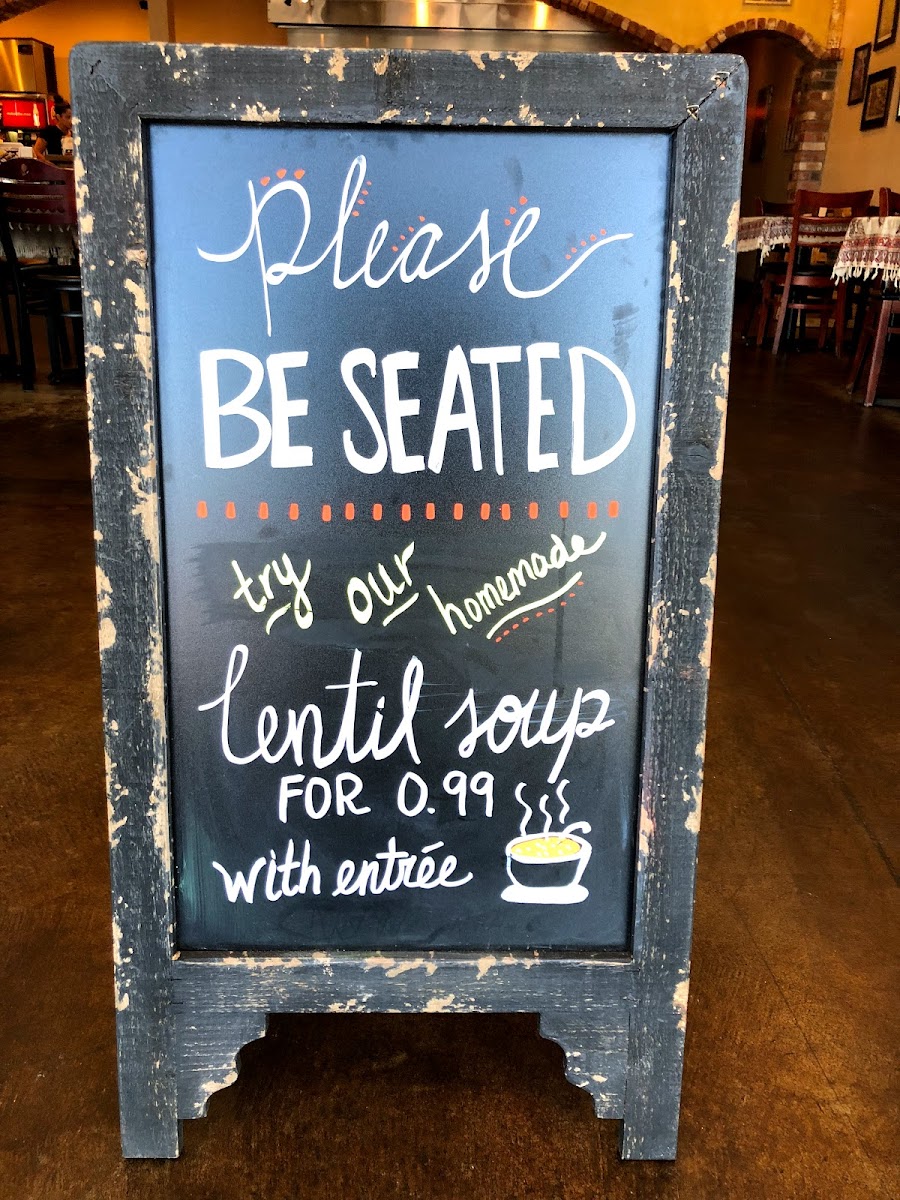 please
BE SEATED
try our homemade
lentil soup
FOR 0.99
with entrée